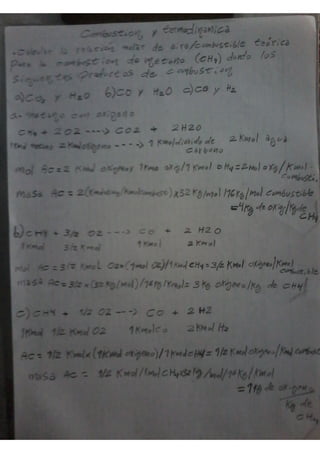 Combustion y termodinamica
• Calcular la relacion molar de aire/combustible teorica
para la combustion de metano (CH4) dando los
siguientes productos de combustion
a) CO2 y H2O b) CO y H2O c) CO y H2
a. metano con oxigeno
CH4 + 2O2 ---> CO2 + 2H2O
1Kmol metano 2Kmol oxigeno ----> 1Kmol dioxido de carbono 2Kmol agua
mol AC = 2 Kmol oxigeno x 1Kmo oxg/1Kmol CH4 = 2mol oxg/Kmol-
combusti.
masa AC = 2(Kmol oxg/Kmol combust) x 32 Kg/mol/16Kg/mol combustible
= 4Kg de oxg/kg de
CH4
b) CH4 + 3/2 O2 ---> CO + 2 H2O
1Kmol 3/2 Kmol 1Kmol 2Kmol
mol AC = 3/2 Kmol O2x(1mol O2)/1Kmol CH4 = 3/2 Kmol oxigeno/Kmol
combustible
masa AC = 3/2 x (32 Kg/mol)/16Kg/Kmol = 3 Kg oxigeno/Kg de CH4
c) CH4 + 1/2 O2 --> CO + 2 H2
1Kmol 1/2 Kmol O2 1Kmol Co 2Kmol H2
AC = 1/2 Kmolx(1Kmol oxigeno)/1Kmol CH4 = 1/2 Kmol oxigeno/Kmol combust
masa AC = 1/2 Kmol/Kmol CH4x32Kg/mol/16Kg/Kmol
= 1Kg de oxigeno
Kg de
CH4